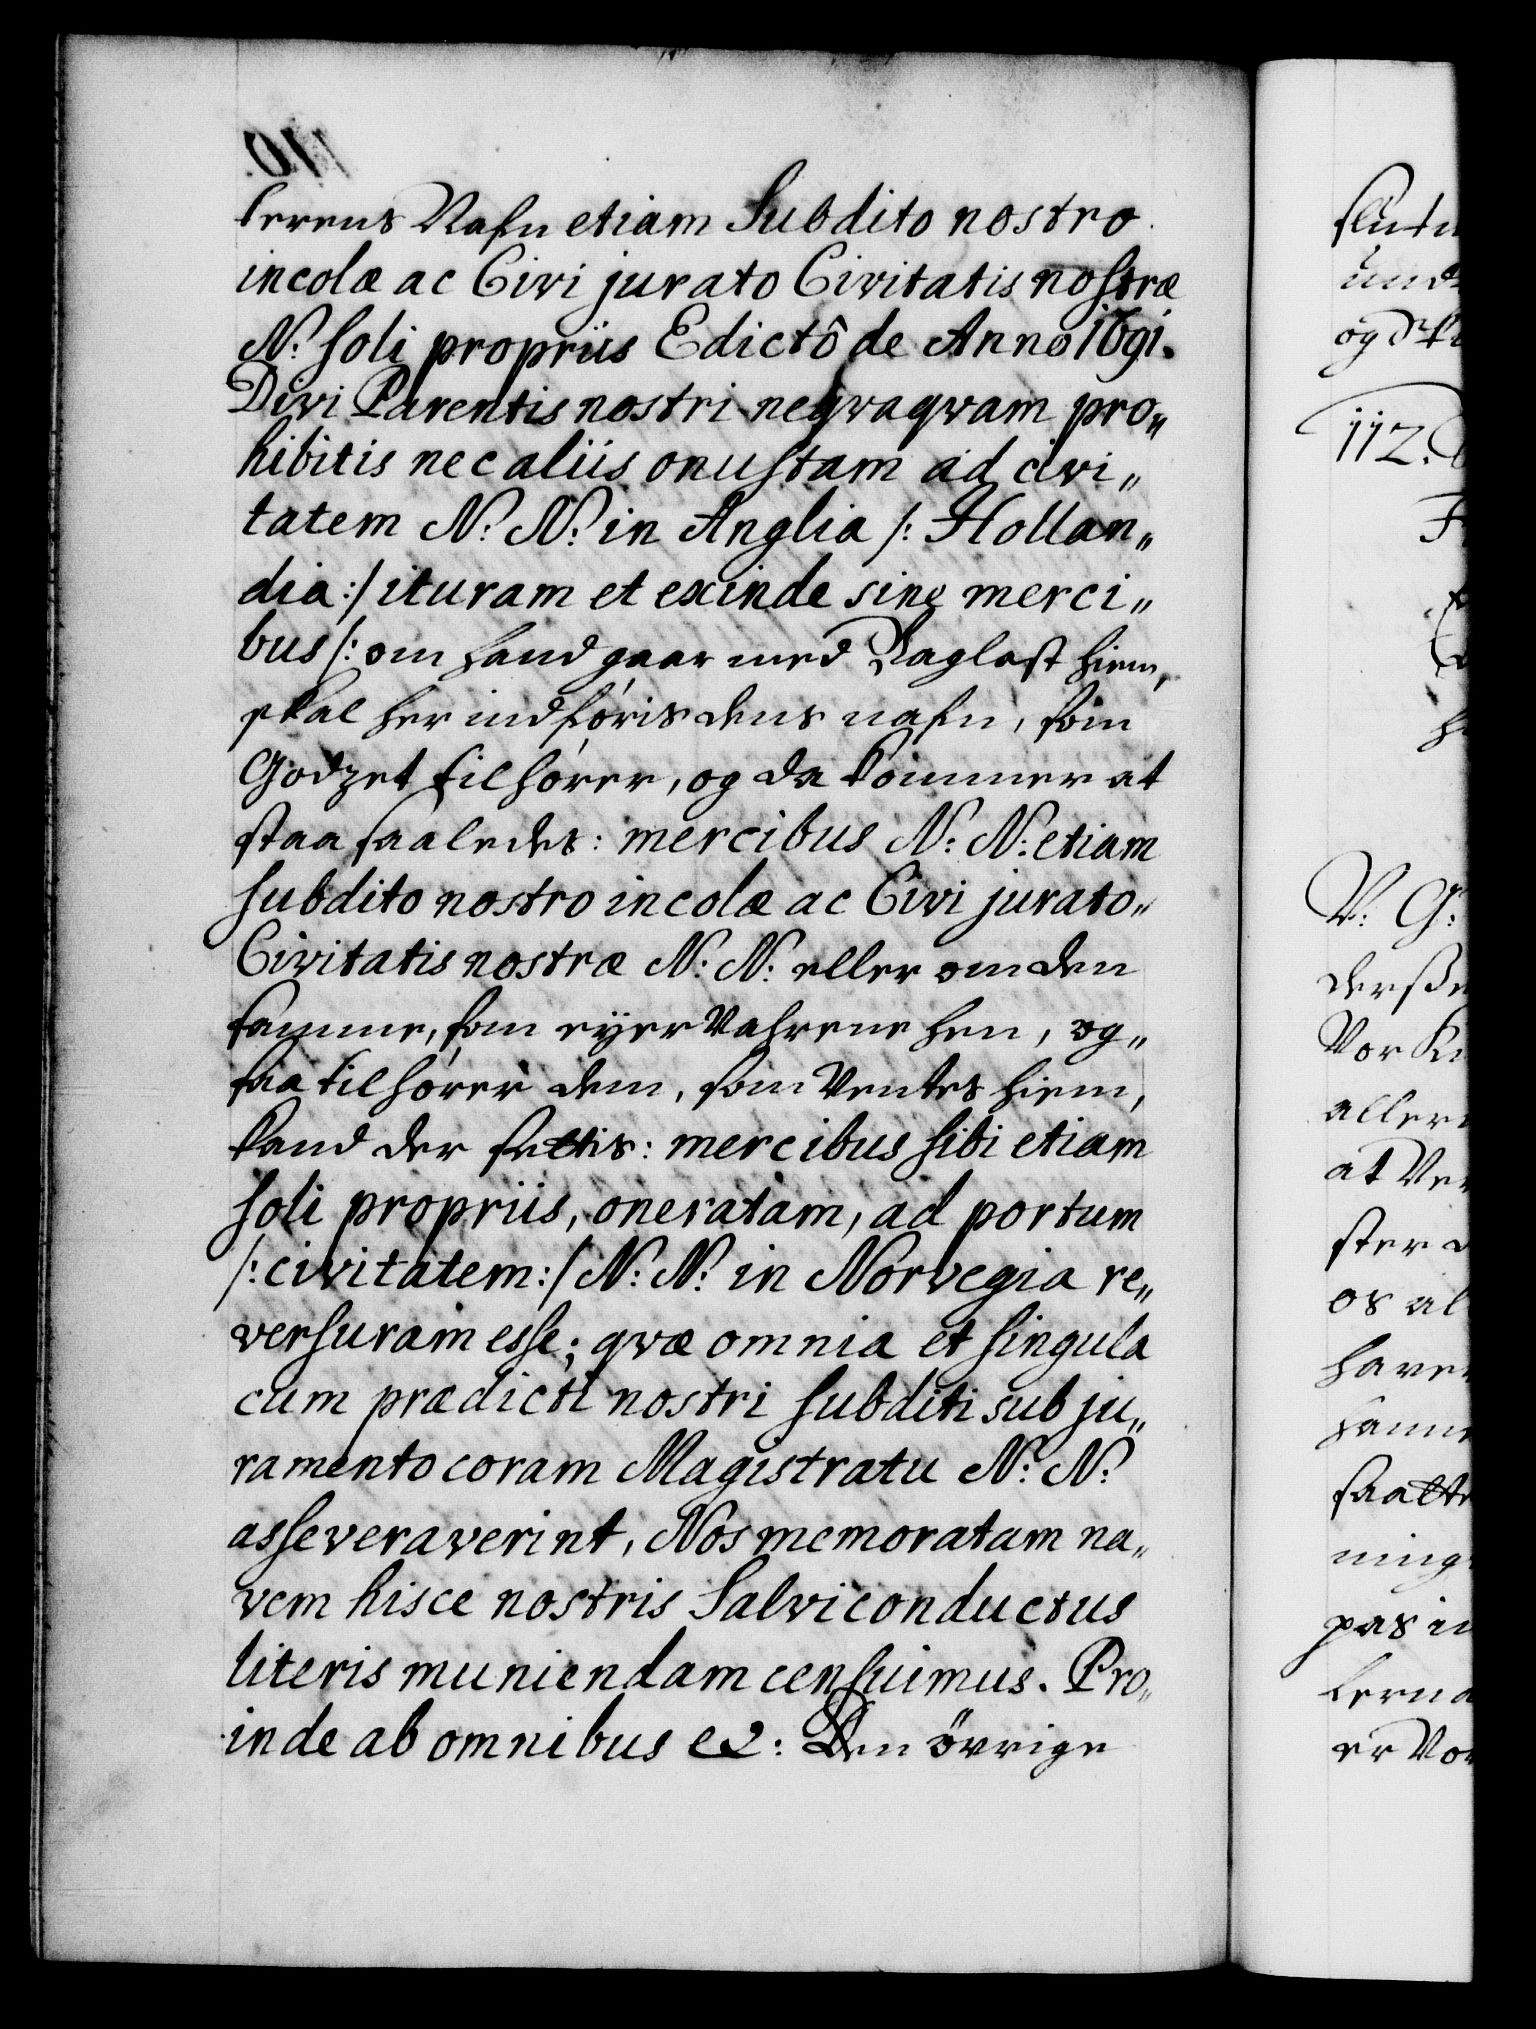 kerens Nafn etiam Subdito nostro
incolæ ac Civi jurato Civitatis nostræ
N: soli propriis Edictô de Anno 1691.
Divi Parentis nostri neqvaqvam pro„
hibitis nec aliis onustam ad civi„
tatem N: N: in Anglia /: Hollan„
dia :/ ituram et exinde sine merci„
bus /: om hand gaar med Baglast hiem,
skal her indføris dens nafn, som
Godzet tilhører, og da kommer at
staa saaledes: mercibus N: N: etiam
subdito nostro incolæ ac Civi jurato„
Civitatis nostræ N: N: eller om den
samme, som eyer Vahrene hen, og„
saa tilhører dem, som Ventes hiem,
kand der settis: mercibus sibi etiam
soli propriis, oneratam, ad portum
/: civitatem :/ N: N: in Norvegia re„
versuram esse; qvæ omnia et singula
cum prædicti nostri subditi sub ju„
ramento coram Magistratu N: N:
asseveraverint, Nos memoratam na„
vem hisce nostris Salviconductus
literis muniendam censuimus. Pro„
inde ab omnibus &c: Den övrige
112.
V: G:
Vor
at
os al
er Vor